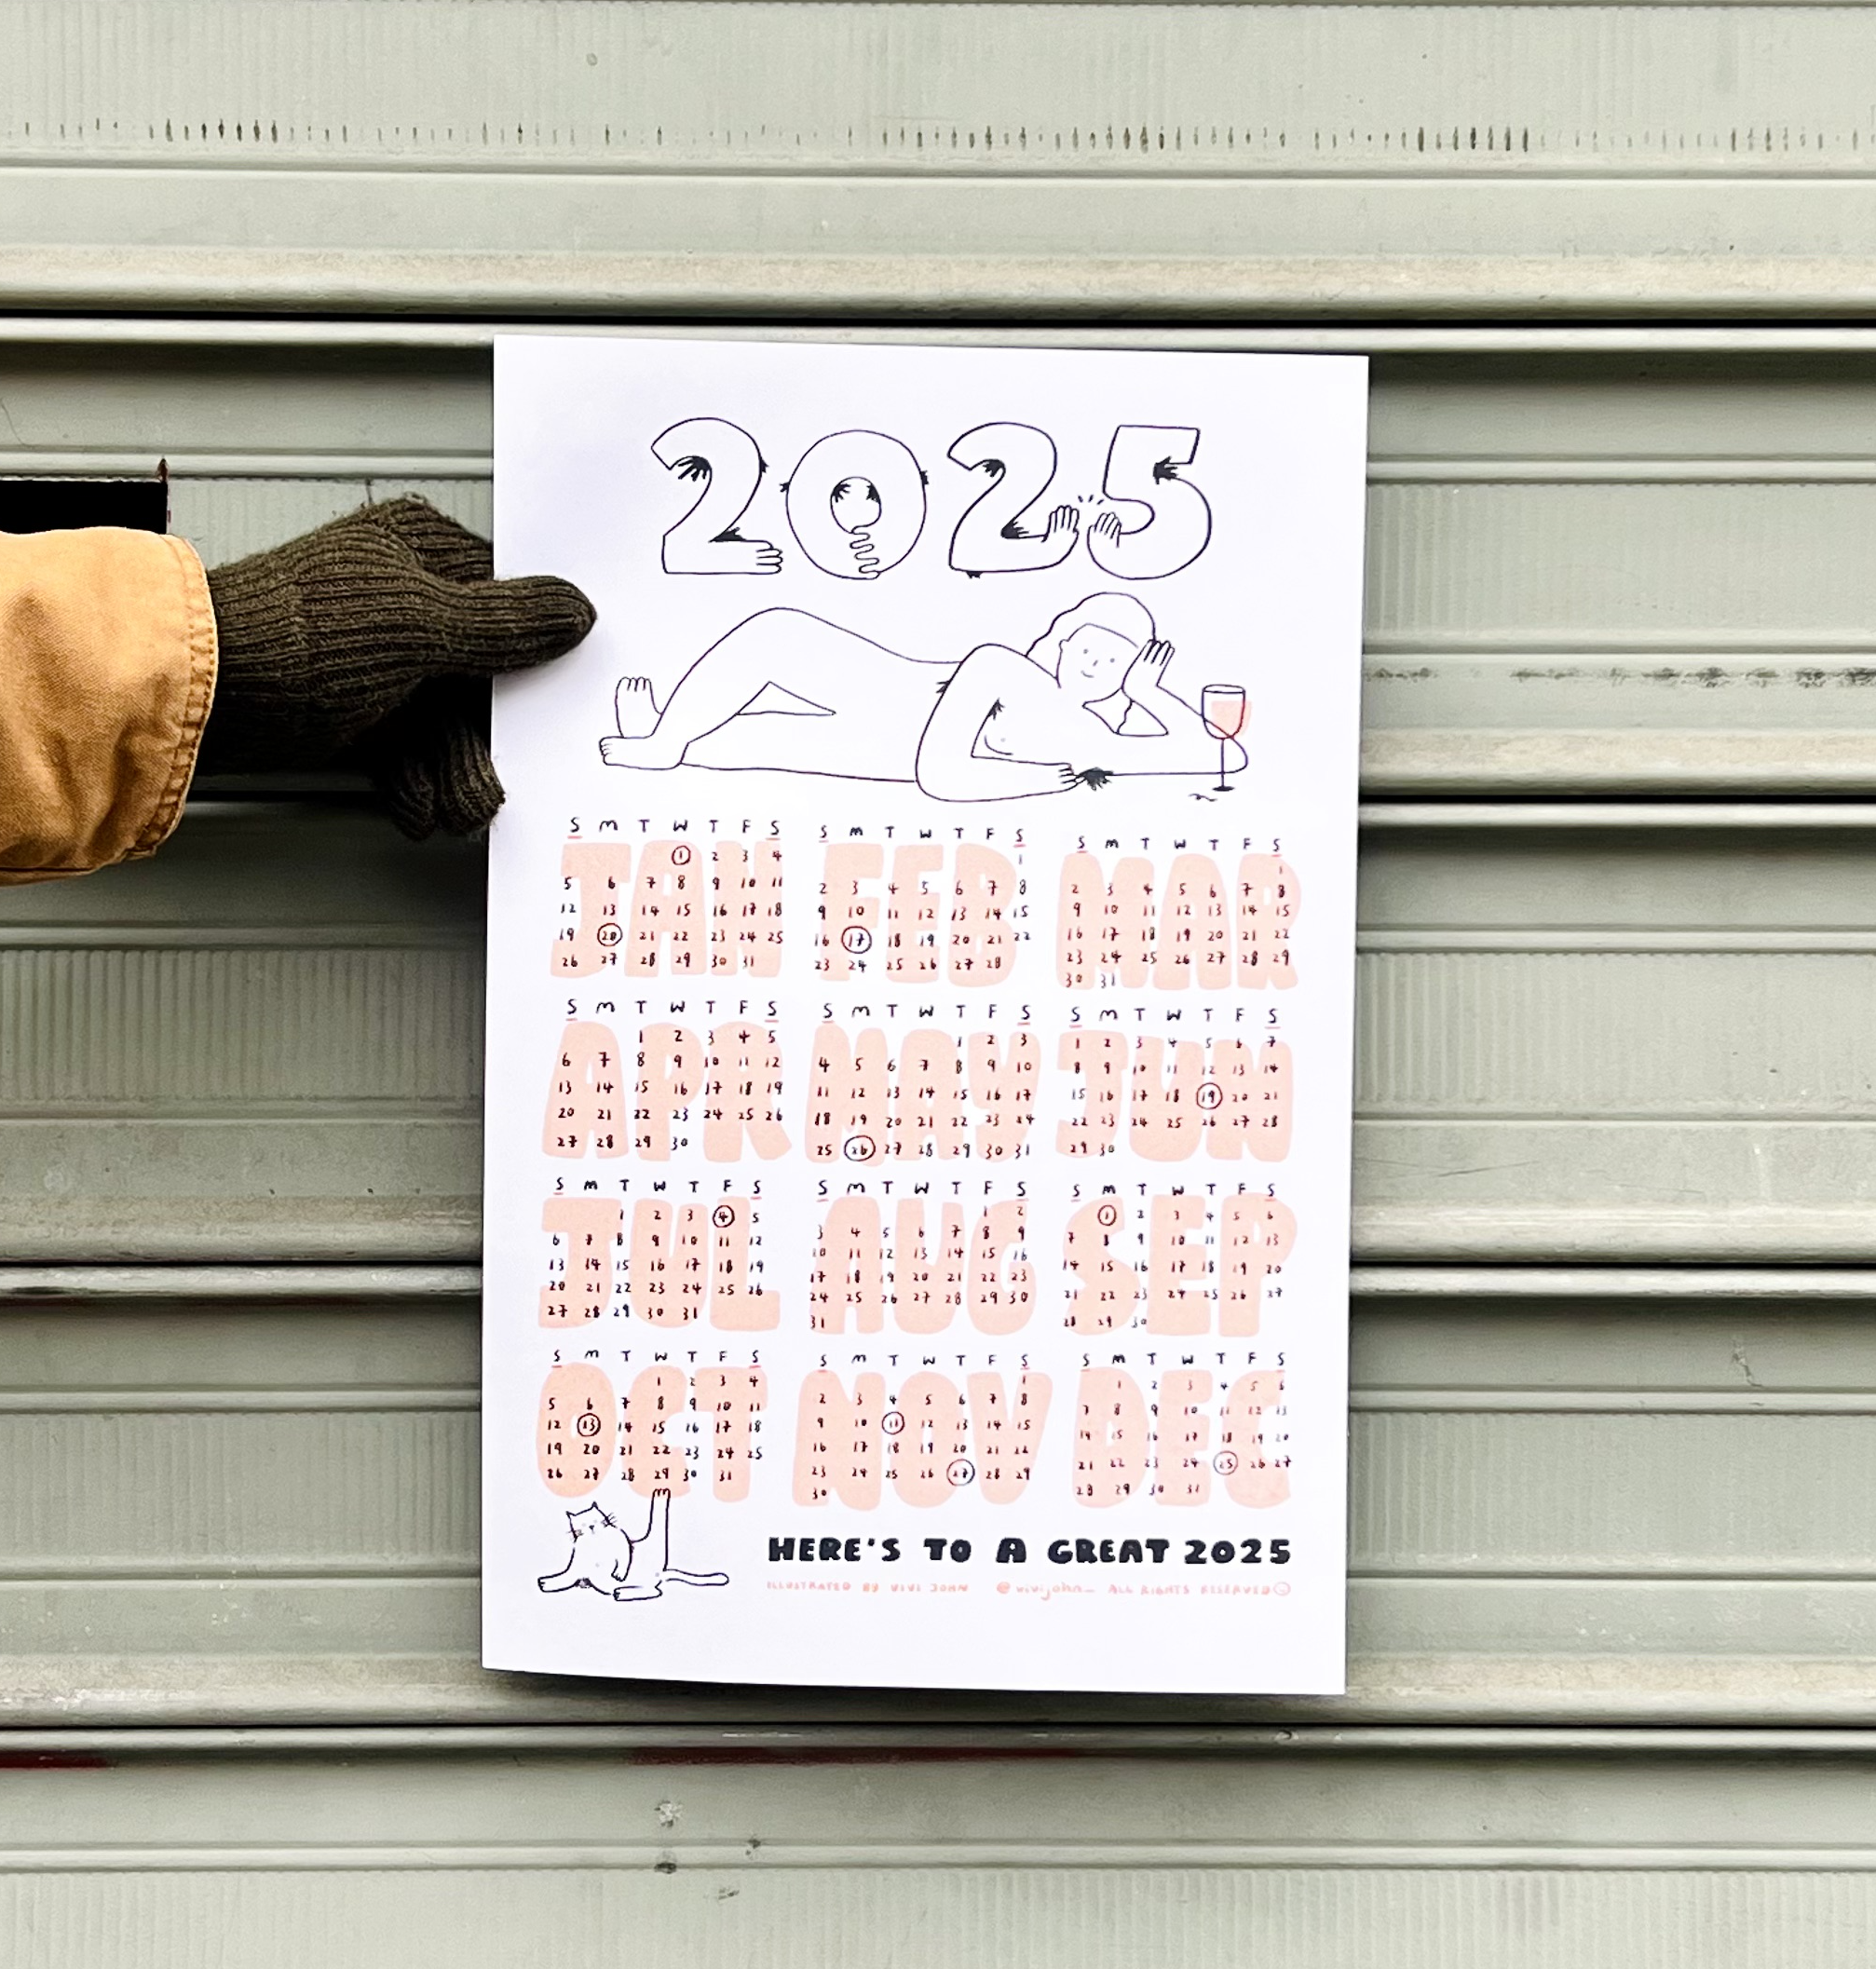 2025
S M T W T F S
1 2 3 4
5 6 7 8 9 10 11
12 13 14 15 16 17 18
19 20 21 22 23 24 25
26 27 28 29 30 31
JAN
S M T W T F S
1
2 3 4 5 6 7 8
9 10 11 12 13 14 15
16 17 18 19 20 21 22
23 24 25 26 27 28
FEB
S M T W T F S
1
2 3 4 5 6 7 8
9 10 11 12 13 14 15
16 17 18 19 20 21 22
23 24 25 26 27 28 29
30 31
MAR
S M T W T F S
1 2 3 4 5
6 7 8 9 10 11 12
13 14 15 16 17 18 19
20 21 22 23 24 25 26
27 28 29 30
APR
S M T W T F S
1 2 3
4 5 6 7 8 9 10
11 12 13 14 15 16 17
18 19 20 21 22 23 24
25 26 27 28 29 30 31
MAY
S M T W T F S
1 2 3 4 5 6 7
8 9 10 11 12 13 14
15 16 17 18 19 20 21
22 23 24 25 26 27 28
29 30
JUN
S M T W T F S
1 2 3 4 5
6 7 8 9 10 11 12
13 14 15 16 17 18 19
20 21 22 23 24 25 26
27 28 29 30 31
JUL
S M T W T F S
1 2
3 4 5 6 7 8 9
10 11 12 13 14 15 16
17 18 19 20 21 22 23
24 25 26 27 28 29 30
31
AUG
S M T W T F S
1 2 3 4 5 6
7 8 9 10 11 12 13
14 15 16 17 18 19 20
21 22 23 24 25 26 27
28 29 30
SEP
S M T W T F S
1 2 3 4
5 6 7 8 9 10 11
12 13 14 15 16 17 18
19 20 21 22 23 24 25
26 27 28 29 30 31
OCT
S M T W T F S
1
2 3 4 5 6 7 8
9 10 11 12 13 14 15
16 17 18 19 20 21 22
23 24 25 26 27 28 29
30
NOV
S M T W T F S
1 2 3 4 5 6
7 8 9 10 11 12 13
14 15 16 17 18 19 20
21 22 23 24 25 26 27
28 29 30 31
DEC
HERE'S TO A GREAT 2025
ILLUSTRATED BY VIVI JOHN @vivijohn_ ALL RIGHTS RESERVED ©